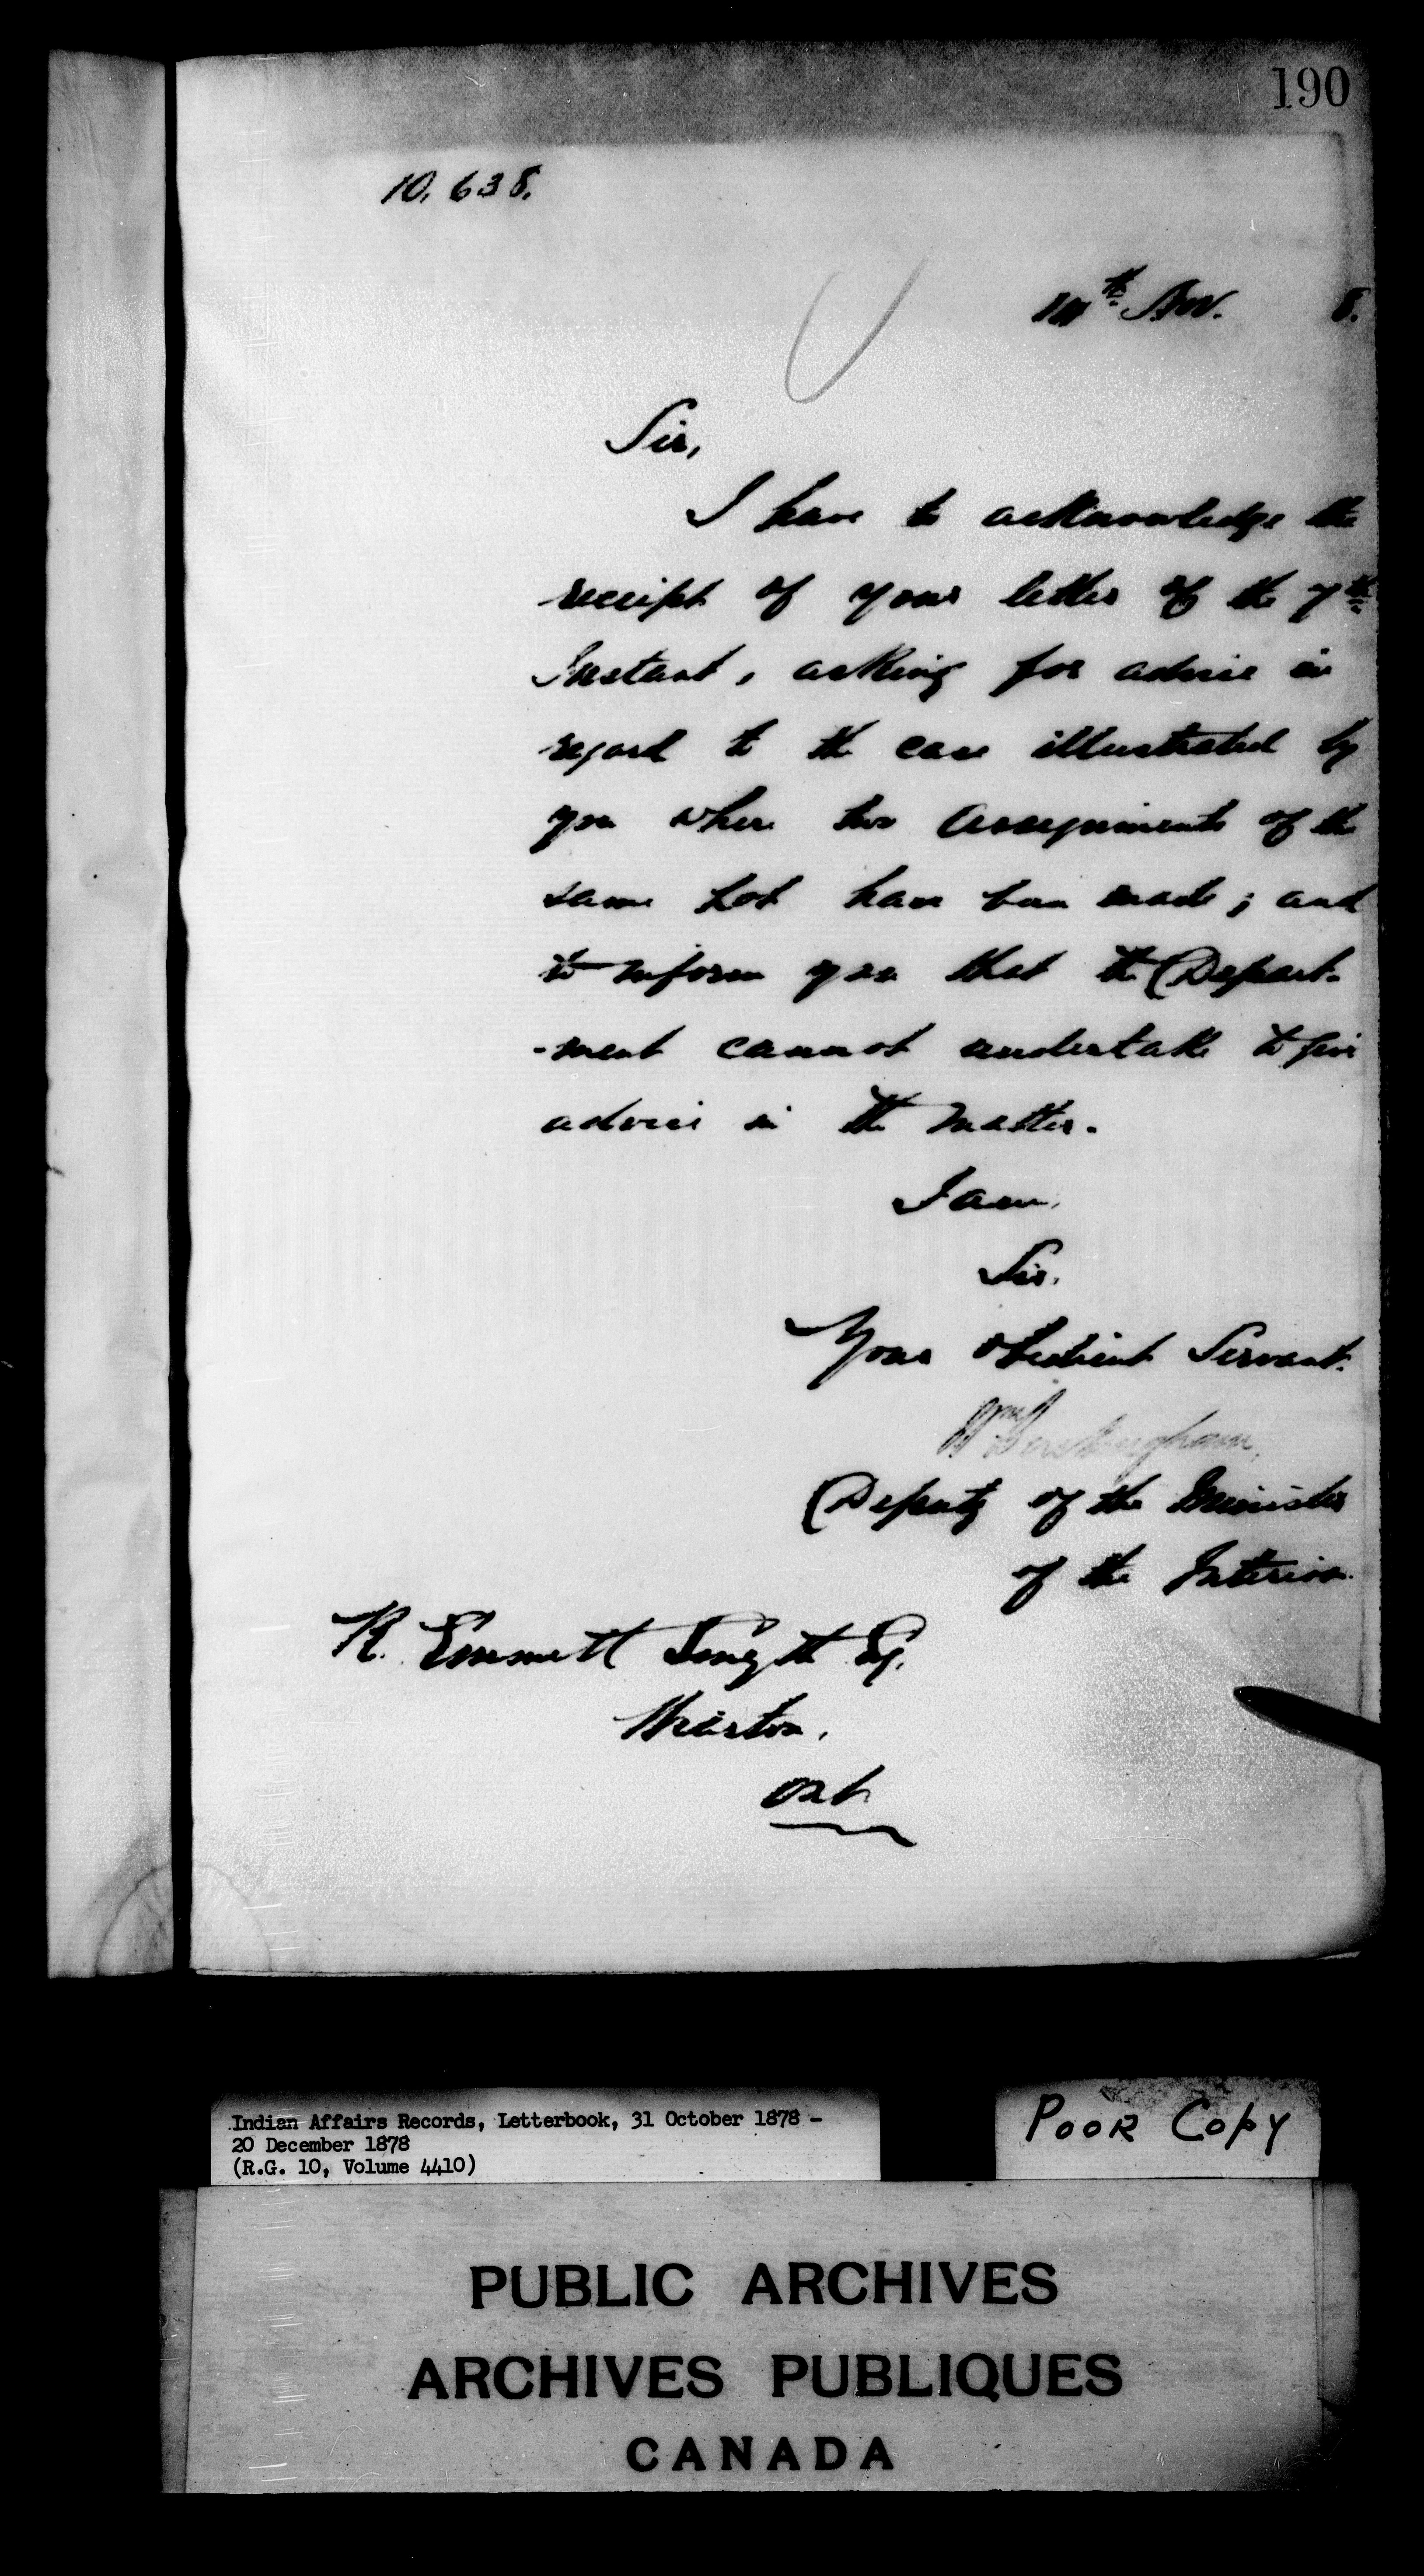 190
10,638.
14th Nov. 8.
Sir,
I have to acknowledge the
receipt of your letter of the 7th
Instant, asking for advice in
regard to the case illustrated by
you where two assignments of the
same Lot have been made; and
to inform you that the Depart-
-ment cannot undertake to give
advice in the matter.
I am,
Sir,
Your obedient Servant.
Wm Buckingham,
Deputy of the Minister
of the Interior.
R. Emmett Smyth Esq.
Wiarton,
Ont
Indian Affairs Records, Letterbook, 31 October 1878 -
20 December 1878
(R.G. 10, Volume 4410)
POOR COPY
PUBLIC ARCHIVES
ARCHIVES PUBLIQUES
CANADA